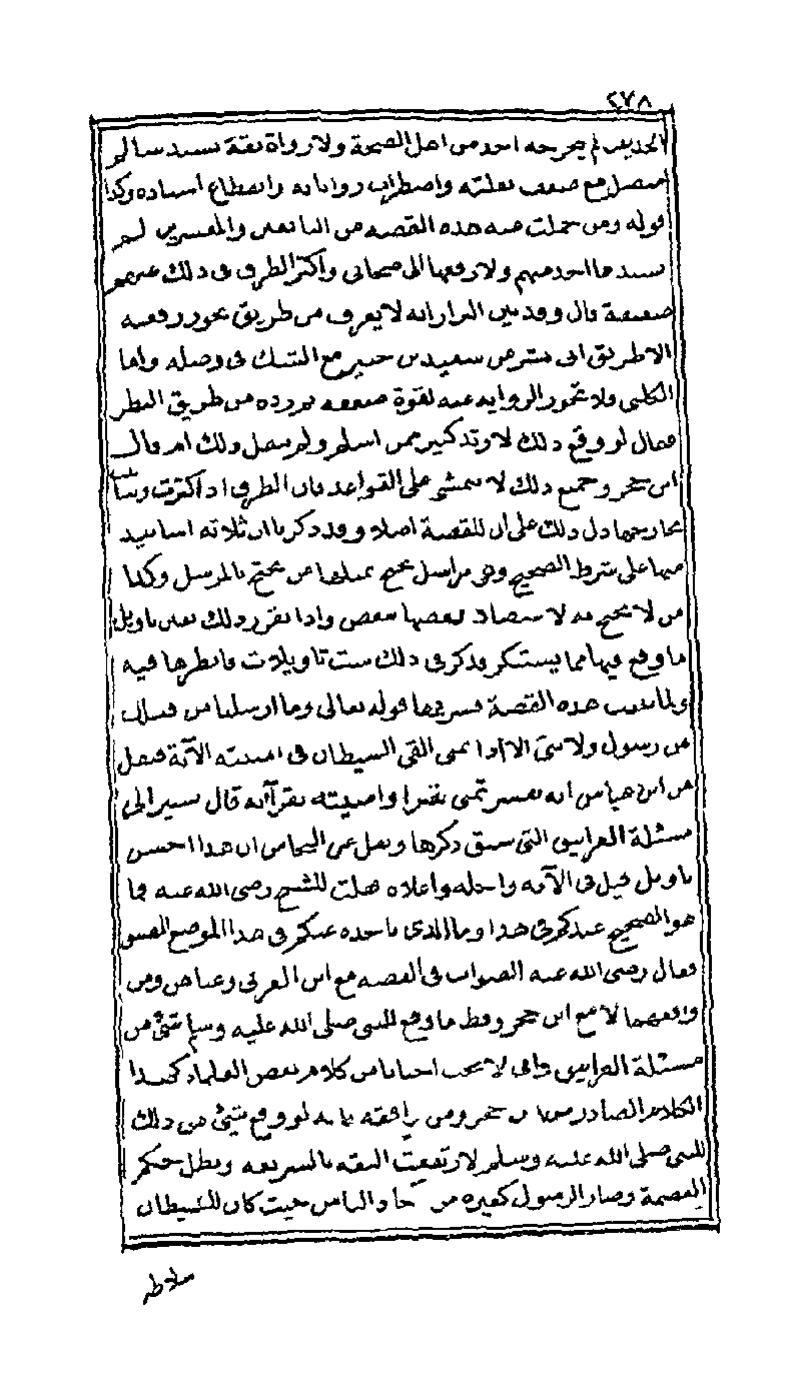 ٢٧٨
الحديث لم يخرجه احد من اهل الصحة ولا رواه ثقة بسند سالم
متصل مع ضعف نقلته واضطراب رواياته وانقطاع اسناده وكذا
قوله ومن حملت عنه هذه القصه من التابعين والمفسرين لم
يسندها احد منهم ولا رفعها الى صحابي واكثر الطرق في ذلك عنهم
ضعيفة قال وقد بين البزار انه لا يعرف من طريق يجوز رفعه
الا طريق ابي بشر عن سعيد بن جبير مع الشك في وصله واما
الكلبي فلا تجوز الرواية عنه لقوة ضعفه ثم رده من طريق النظر
فقال لو وقع ذلك لارتد كثير ممن اسلم ولم ينقل ذلك اهـ قال
ابن حجر وجميع ذلك لا يتمشى على القواعد فان الطرق اذا كثرت وتباينت
مخارجها دل ذلك على ان للقصة اصلا وقد ذكرنا ان ثلاثة اسانيد
منها على شرط الصحيح وهي مراسيل يحتج بمثلها من يحتج بالمرسل وكذا
من لا يحتج به لاعتضاد بعضها ببعض واذا تقرر ذلك تعين تاويل
ما وقع فيها مما يستنكر وذكر في ذلك ست تاويلات فانظرها فيه
ولما هذه القصة فسر بها قوله تعالى وما ارسلنا من قبلك
من رسول ولا نبي الا اذا تمنى القى الشيطان في امنيته الآية فنقل
عن ابن عباس انه يفسر تمنى بقرا وامنيته بقرآنه قال يشير الى
مسئلة الغرانيق التي سبق ذكرها ونقل عن النحاس ان هذا احسن
تاويل قيل في الآية واجله واعلاه فقلت للشيخ رضى الله عنه فما
هو الصحيح عندكم في هذا وما الذي ناخذه عنكم في هذا الموضع الضيق
فقال رضى الله عنه الصواب في القصه مع ابن العربي وعياض ومن
وافقهما لا مع ابن حجر وقط ما وقع للنبي صلى الله عليه وسلم شئ من
مسئلة الغرانيق واني لاعجب احيانا من كلام بعض العلماء كهذا
الكلام الصادر من ابن حجر ومن وافقه فانه لو وقع شئ من ذلك
للنبي صلى الله عليه وسلم لارتفعت الثقة بالشريعة وبطل حكم
العصمة وصار الرسول كغيره من آحاد الناس حيث كان للشيطان